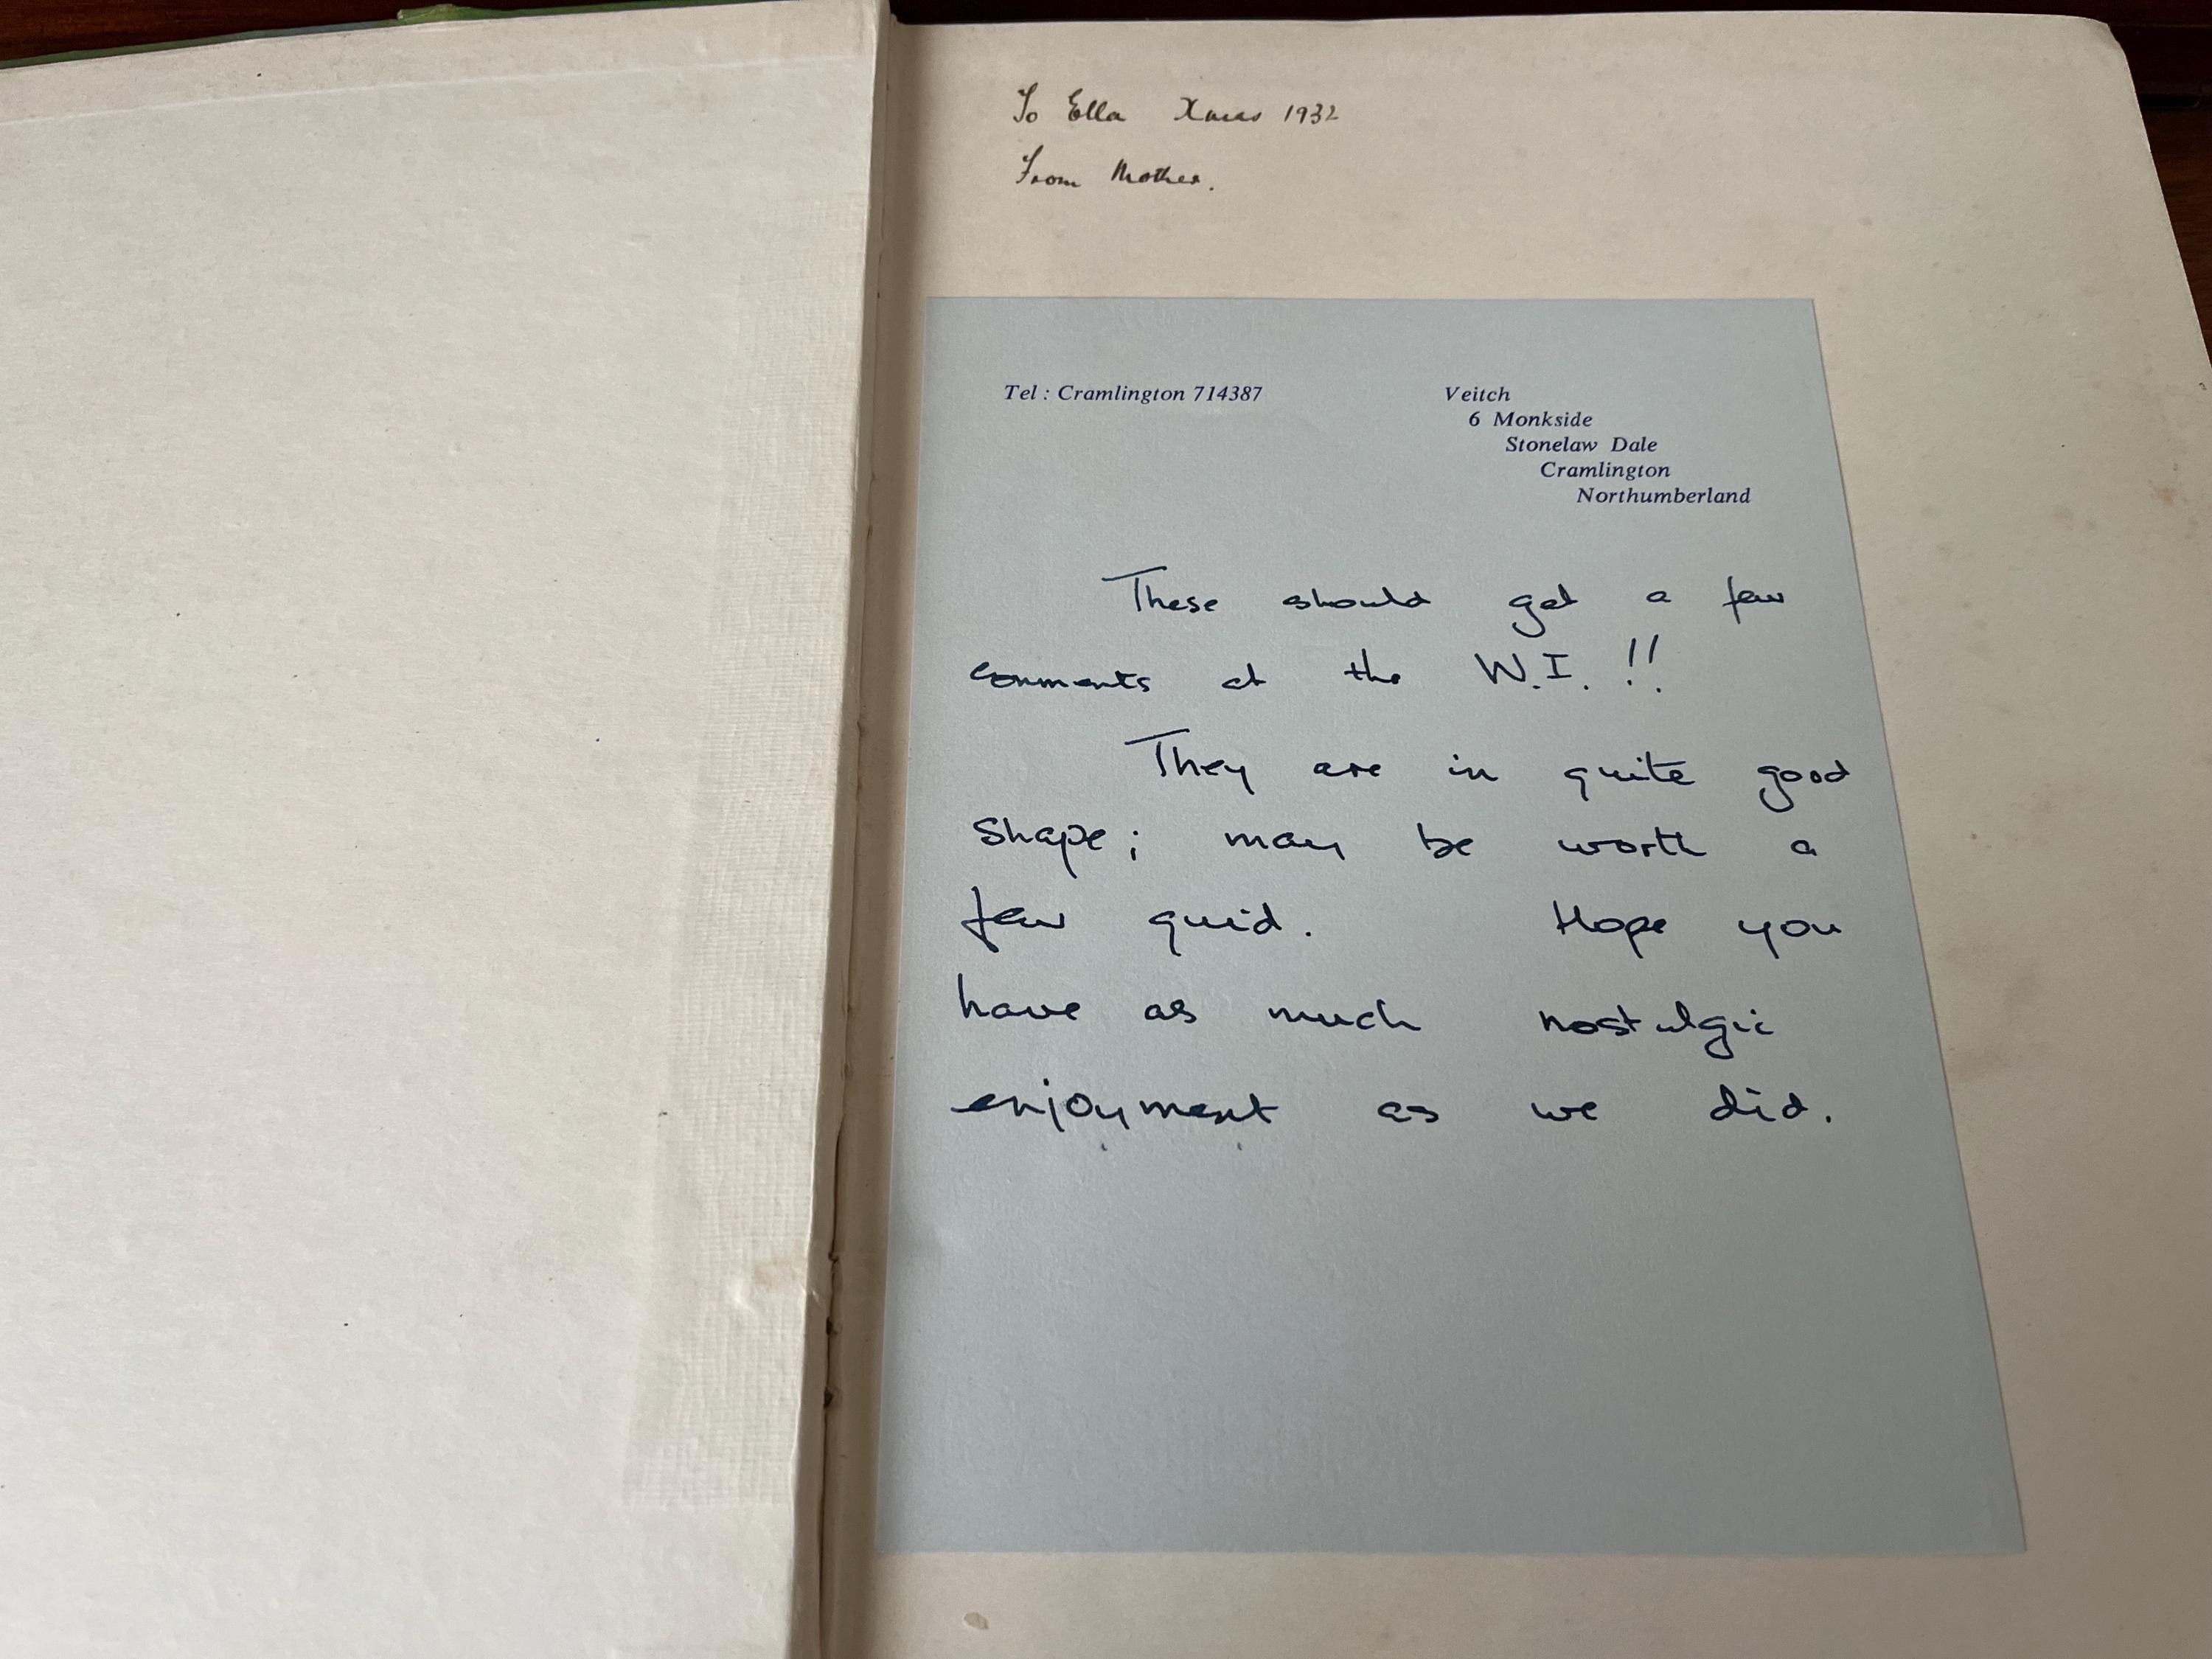 To Ella Xmas 1932
From Mother.
Tel : Cramlington 714387
Veitch
6 Monkside
Stonelaw Dale
Cramlington
Northumberland
These should get a few
comments at the W.I. !!
They are in quite good
shape; may be worth a
few quid. Hope you
have as much nostalgic
enjoyment as we did.